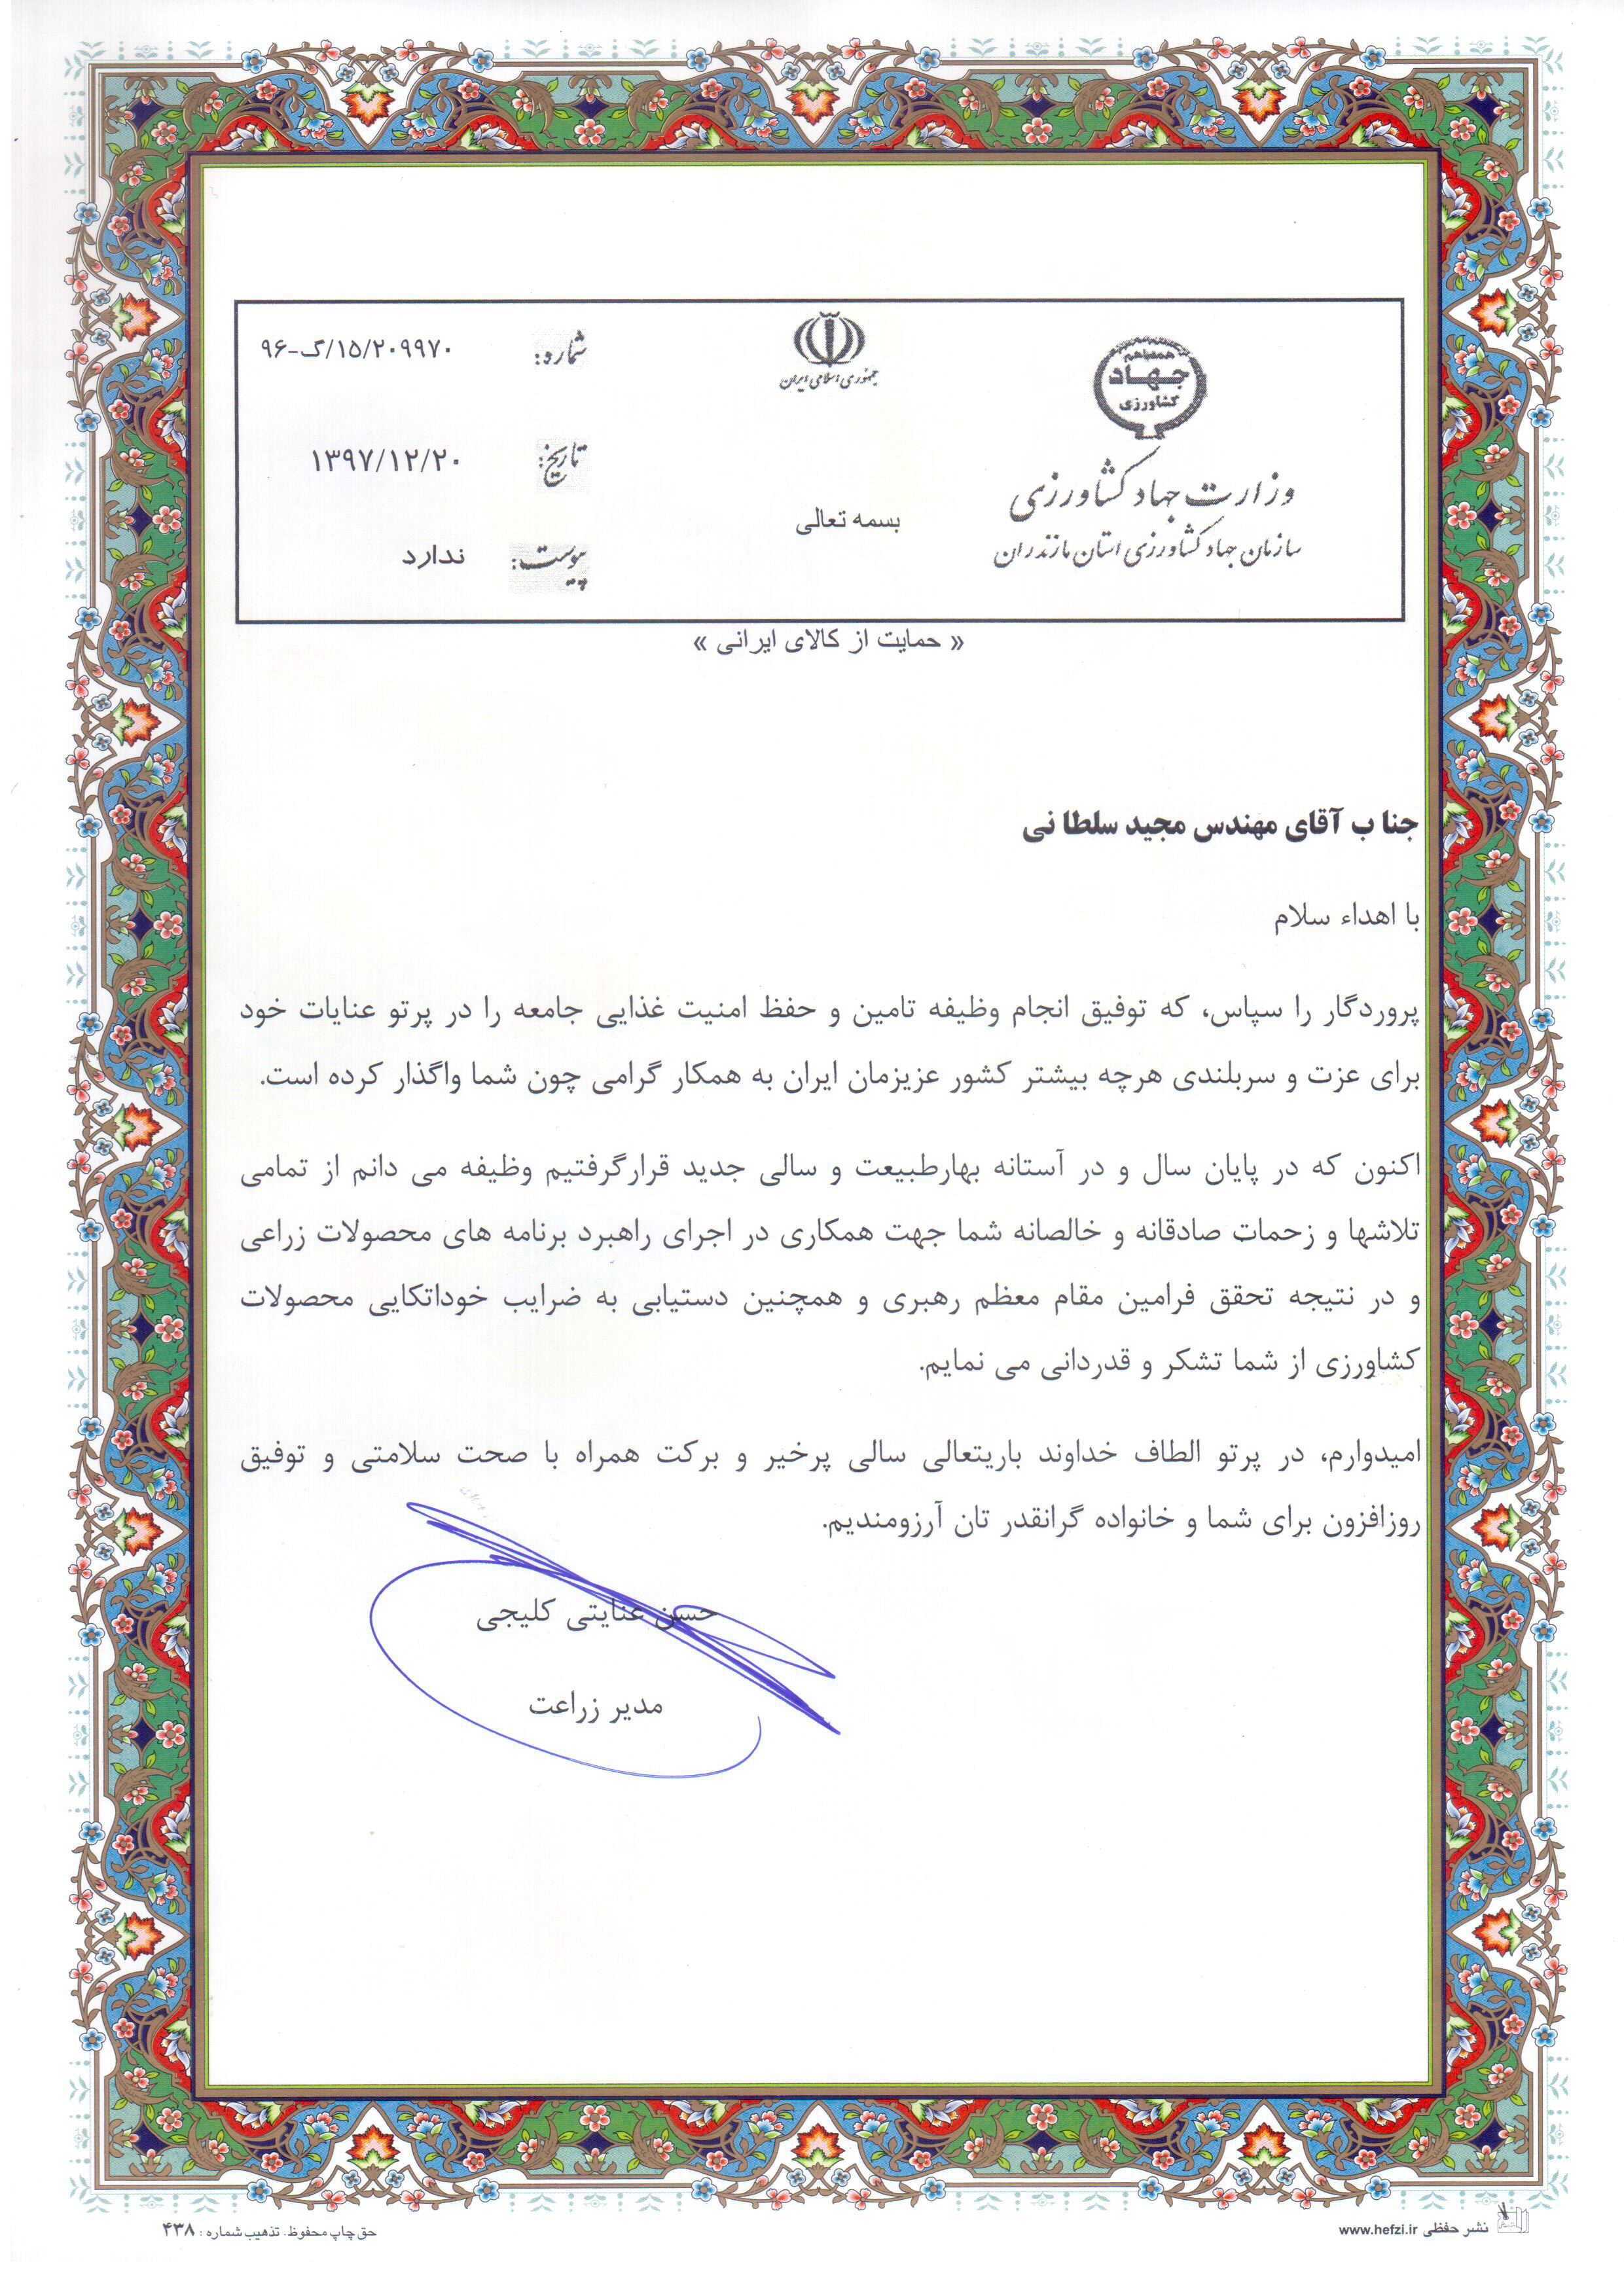 همه با هم
جهاد
کشاورزی
وزارت جهاد کشاورزی
سازمان جهاد کشاورزی استان مازندران
جمهوری اسلامی ایران
بسمه تعالی
شماره: ۱۵/۲۰۹۹۷۰/ک-۹۶
تاریخ: ۱۳۹۷/۱۲/۲۰
پیوست: ندارد
« حمایت از کالای ایرانی »
جنا ب آقای مهندس مجید سلطا نی
با اهداء سلام
پروردگار را سپاس، که توفیق انجام وظیفه تامین و حفظ امنیت غذایی جامعه را در پرتو عنایات خود
برای عزت و سربلندی هرچه بیشتر کشور عزیزمان ایران به همکار گرامی چون شما واگذار کرده است.
اکنون که در پایان سال و در آستانه بهارطبیعت و سالی جدید قرارگرفتیم وظیفه می دانم از تمامی
تلاشها و زحمات صادقانه و خالصانه شما جهت همکاری در اجرای راهبرد برنامه های محصولات زراعی
و در نتیجه تحقق فرامین مقام معظم رهبری و همچنین دستیابی به ضرایب خوداتکایی محصولات
کشاورزی از شما تشکر و قدردانی می نمایم.
امیدوارم، در پرتو الطاف خداوند باریتعالی سالی پرخیر و برکت همراه با صحت سلامتی و توفیق
روزافزون برای شما و خانواده گرانقدر تان آرزومندیم.
حسن عنایتی کلیجی
مدیر زراعت
نشر حفظی www.hefzi.ir
حق چاپ محفوظ. تذهیب شماره : ۴۳۸